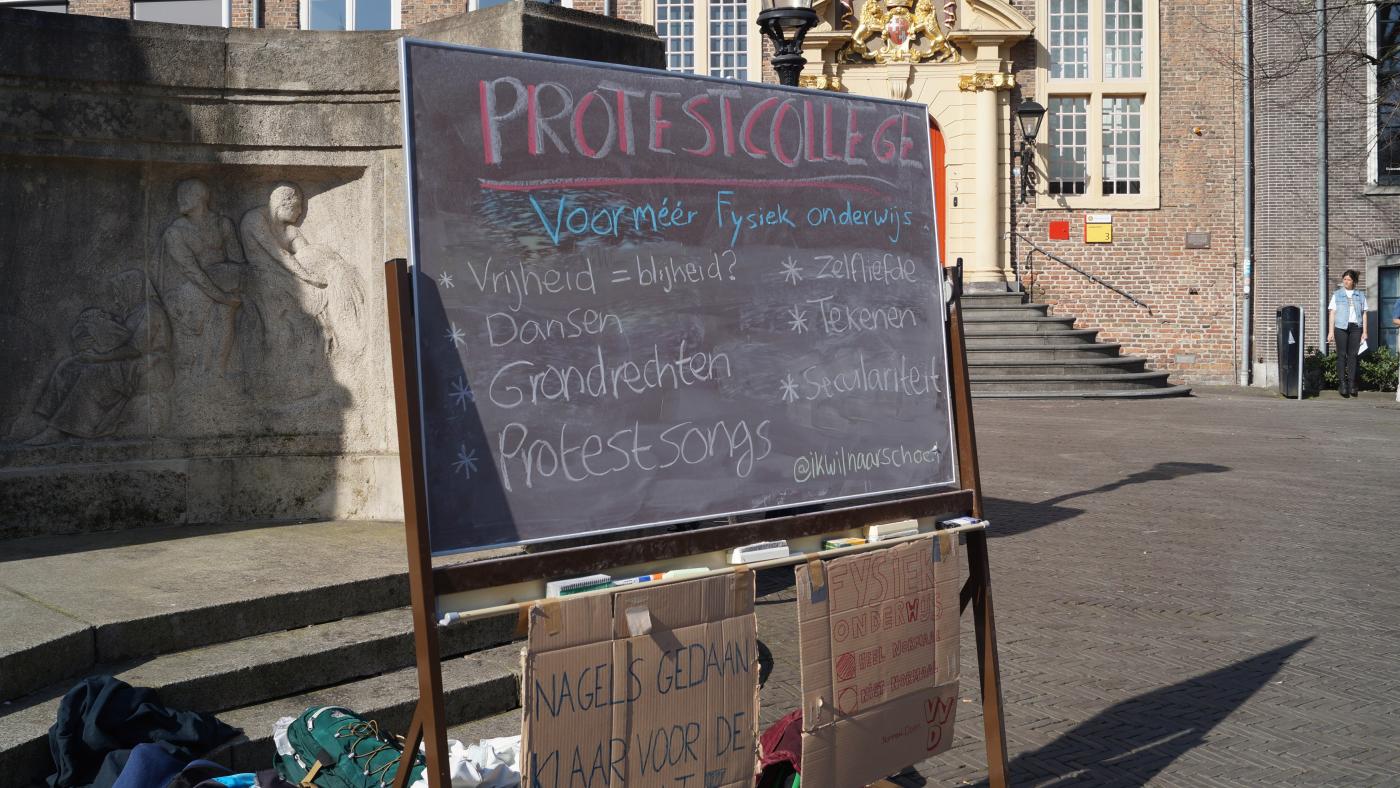 PROTESTCOLLEGE
Voor méér Fysiek onderwijs
* Vrijheid = blijheid?
* Dansen
* Grondrechten
* Protestsongs
* Zelfliefde
* Tekenen
* Seculariteit
@ikwilnaarschool
NAGELS GEDAAN
KLAAR VOOR DE
FYSIEK
ONDERWIJS
HEEL NORMAAL
NIET NORMAAL
VVD
3